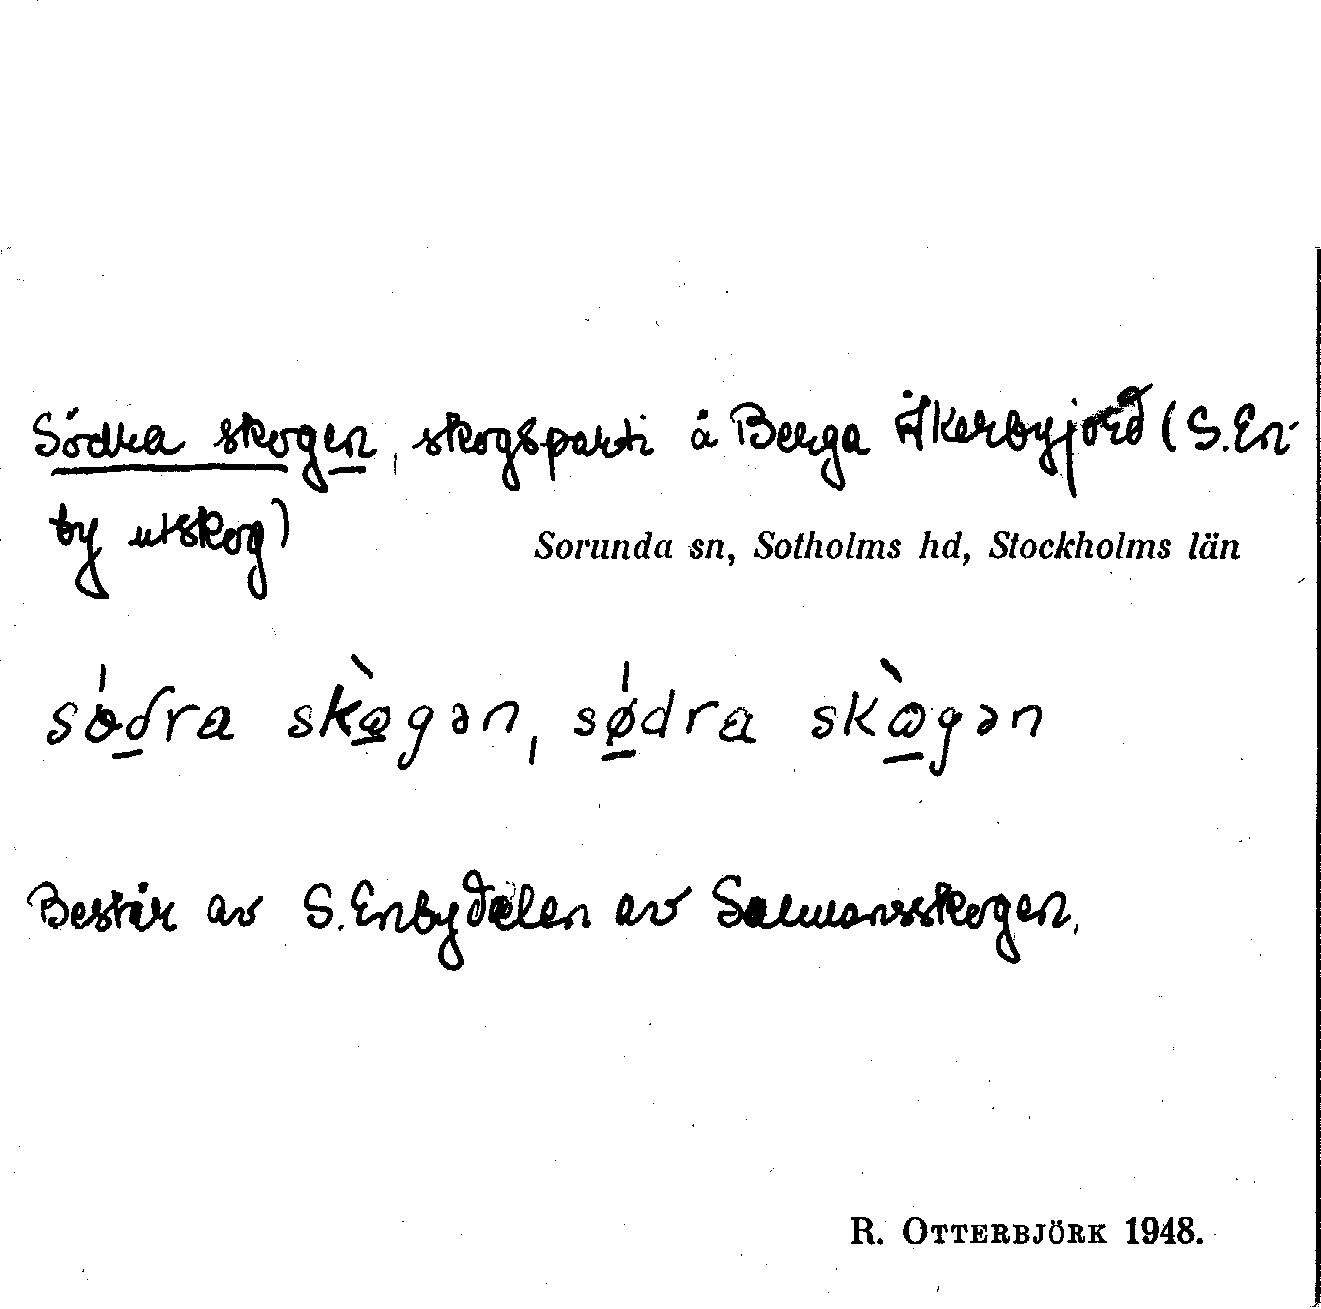 Södra skogen, skogsparti å Berga Åkerbyjord (S. En-
by utskog)
Sorunda sn, Sotholms hd, Stockholms län
södra skògən, sødra skògən
Består av S. Enbydalen av Salmansskogen.
R. OTTERBJÖRK 1948.